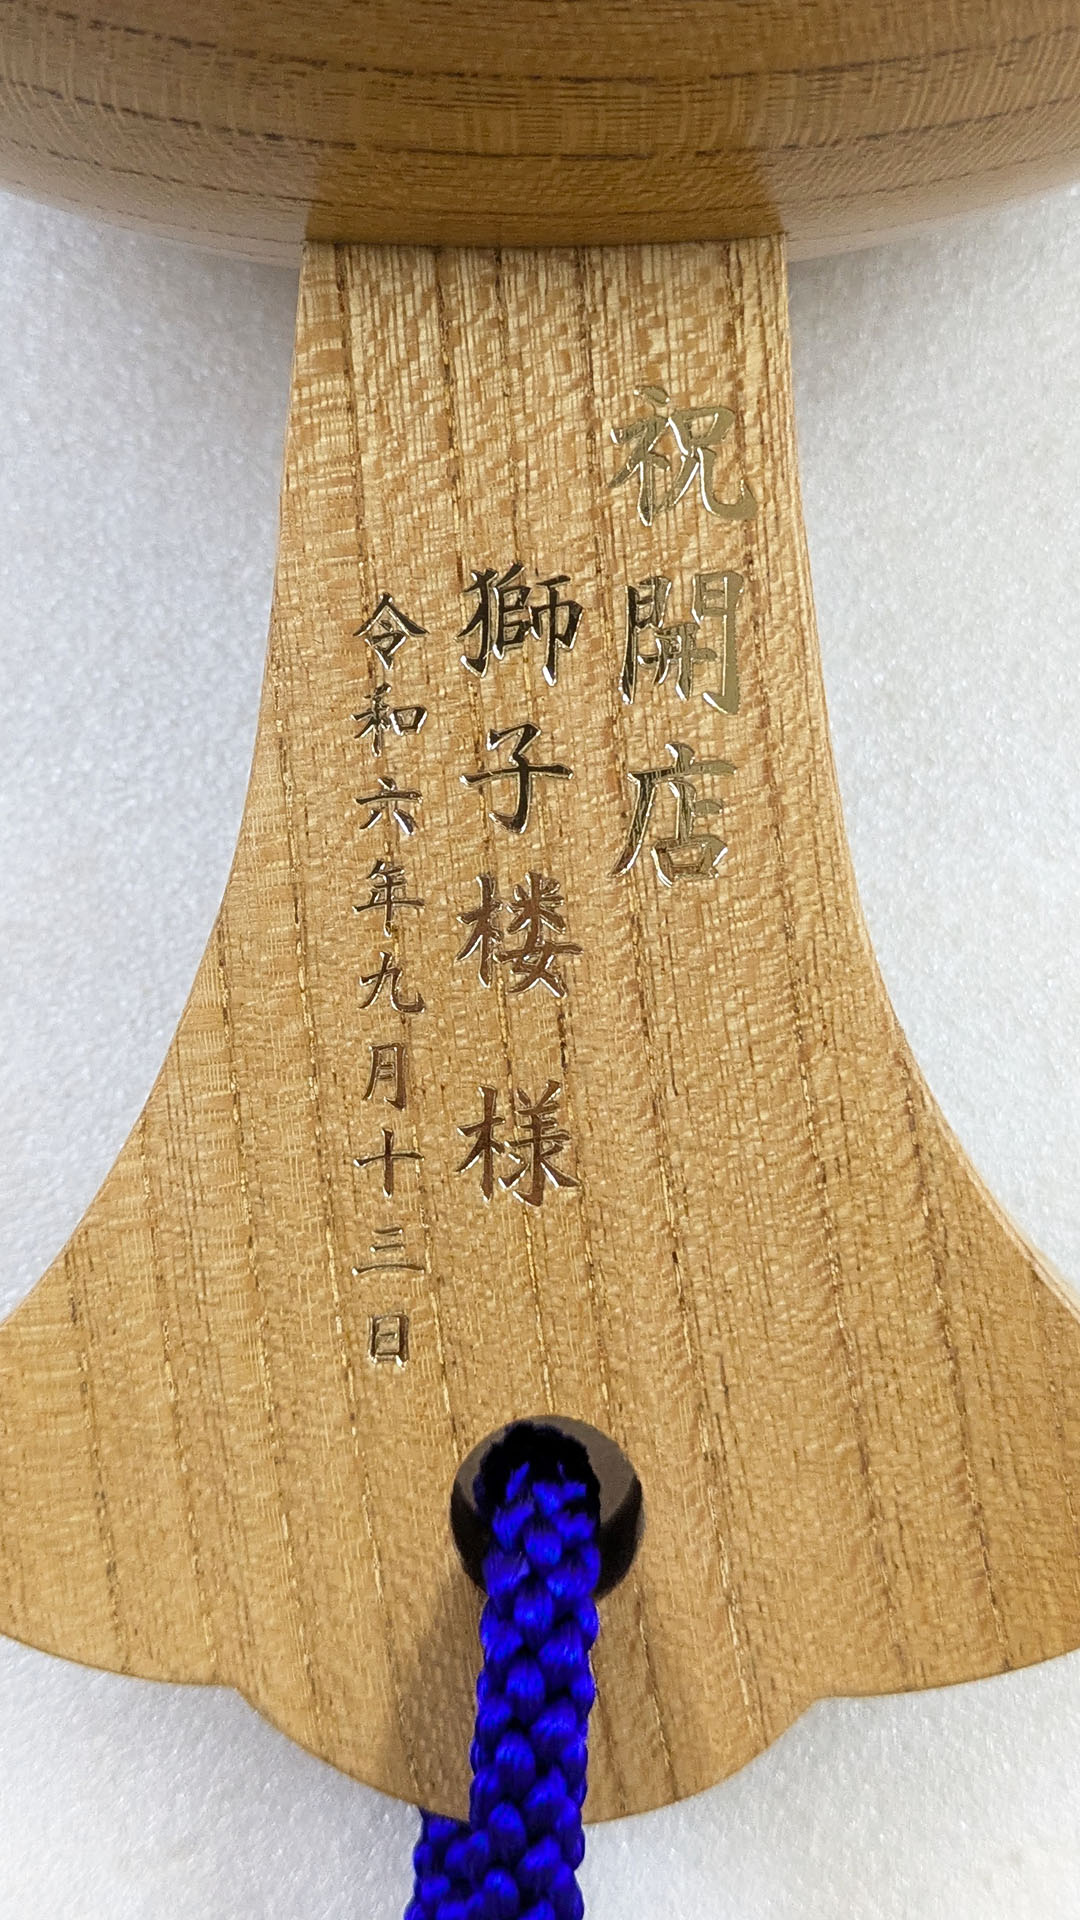 祝開店
獅子楼 様
令和六年九月十三日